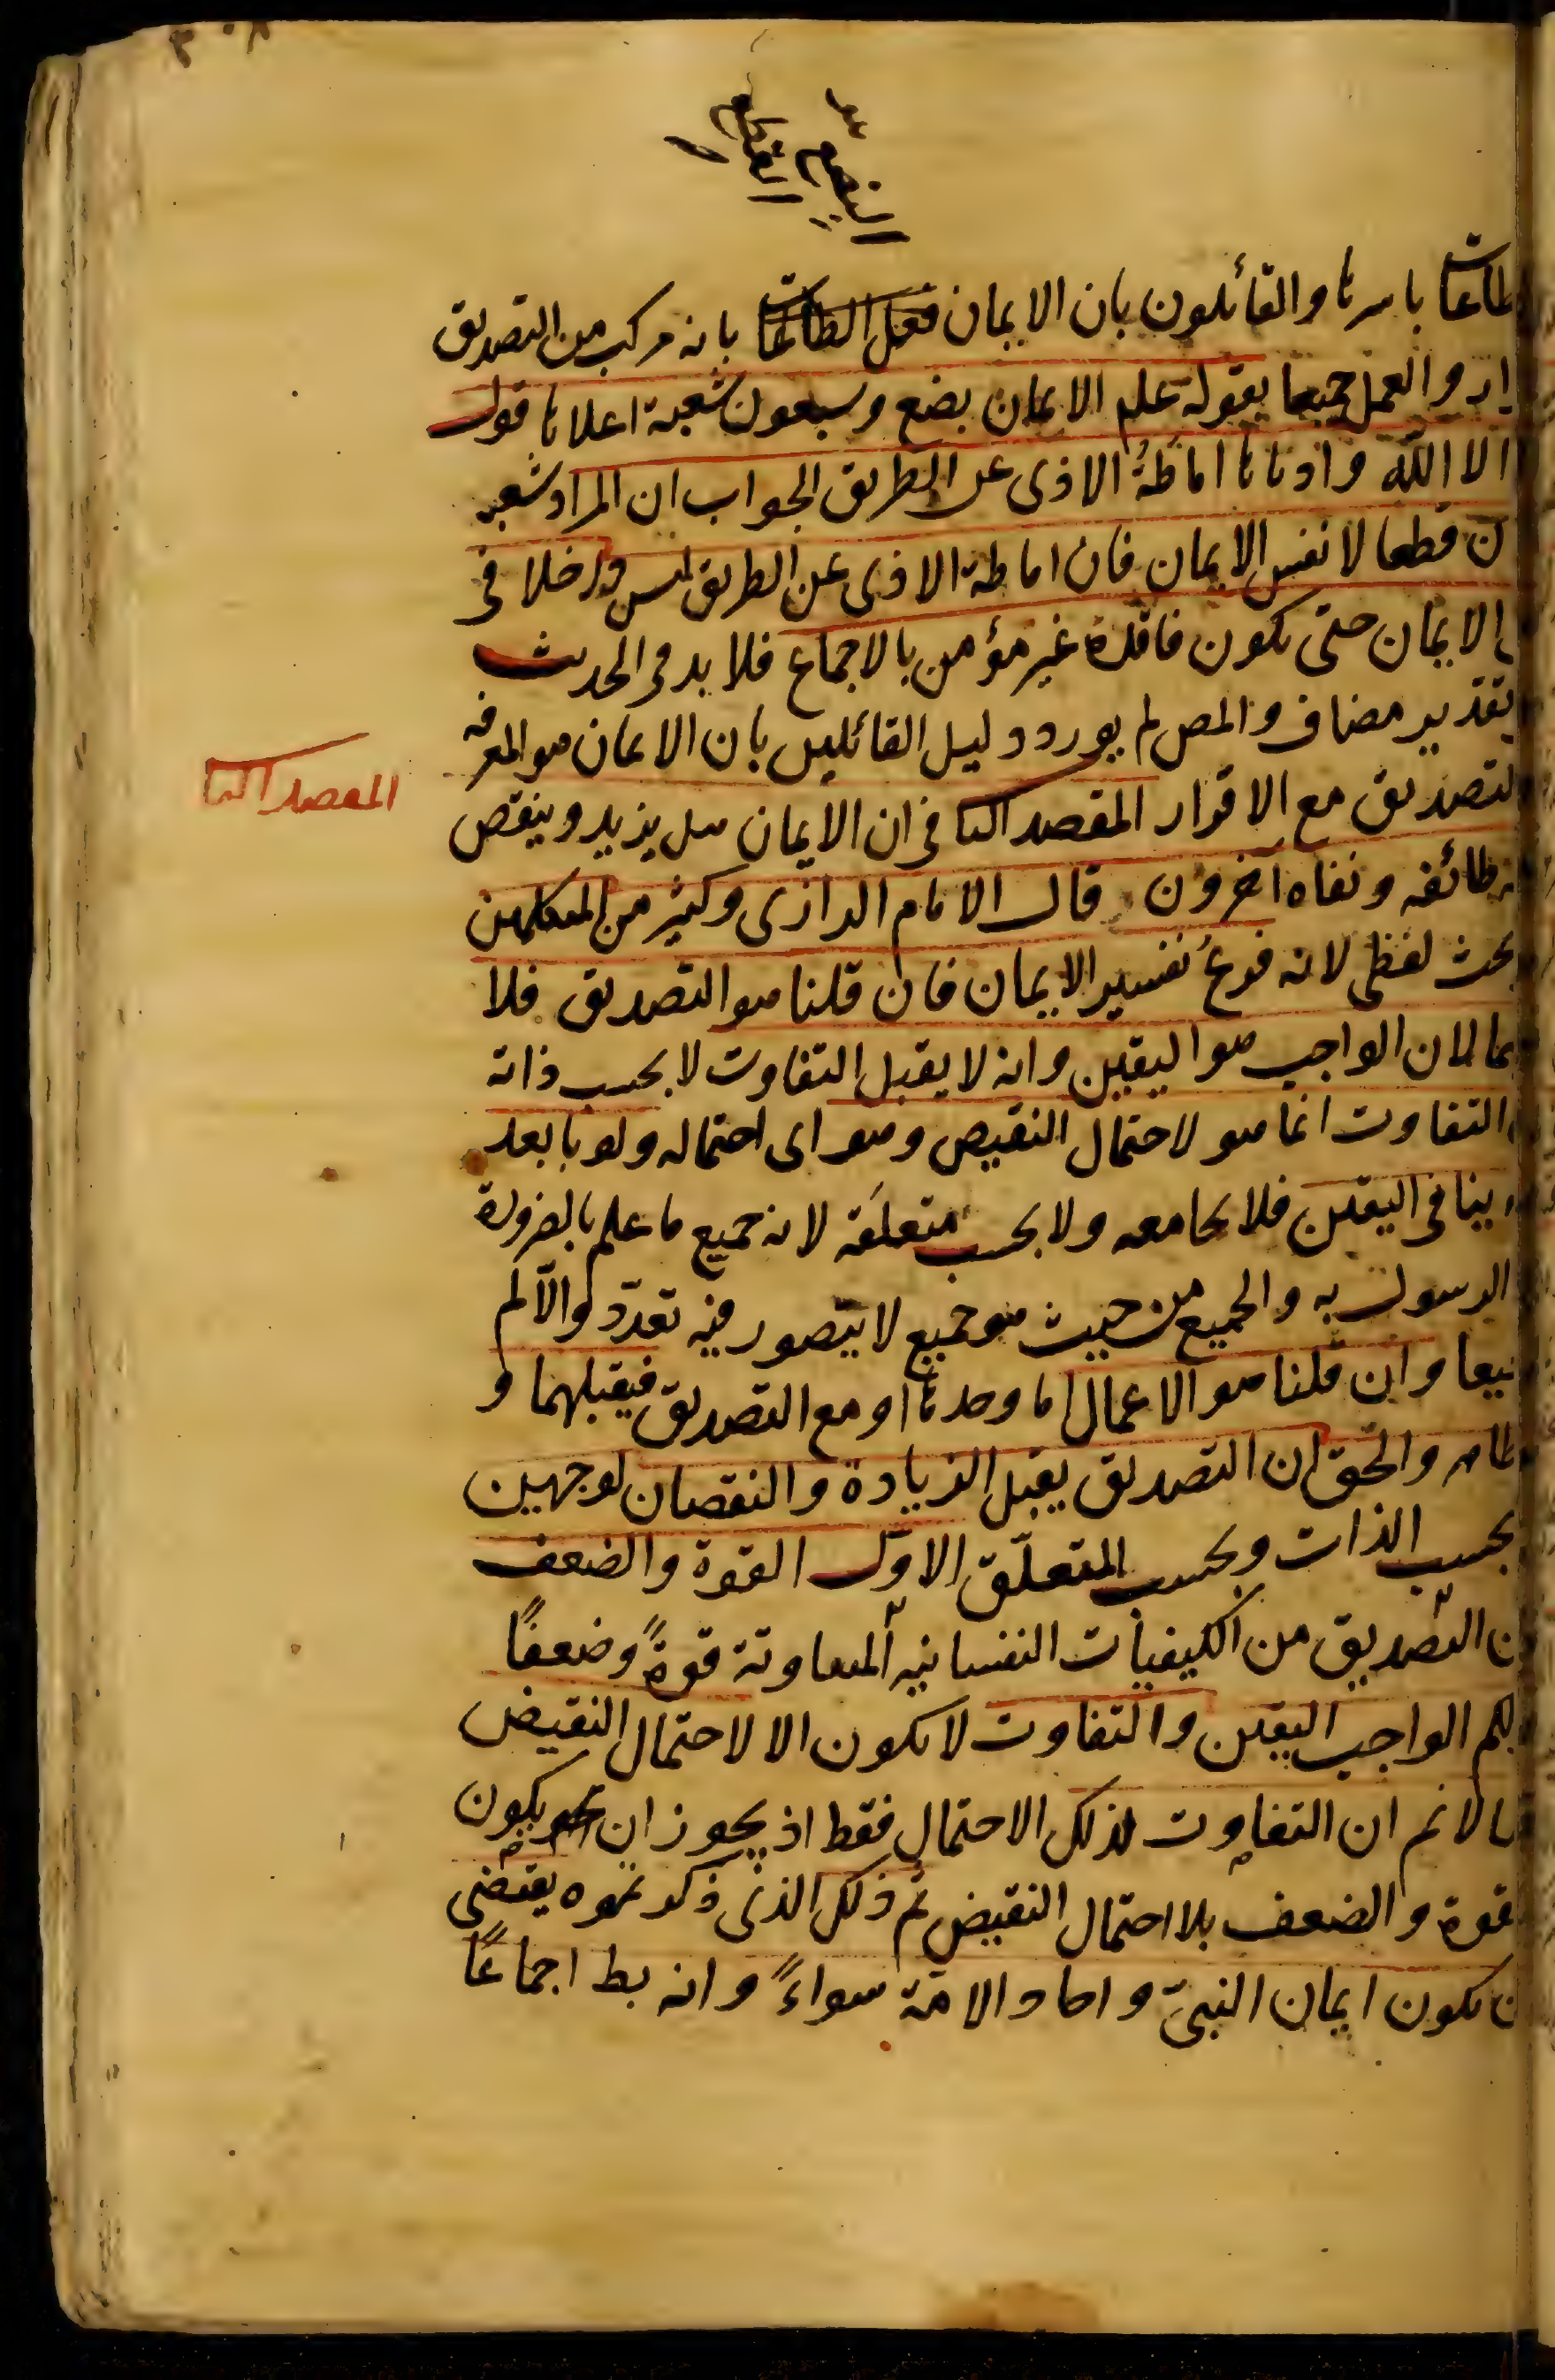 ٣٠٨
طاعات باسرها والقائلون بان الايمان فعل الطاعات بانه مركب من التصديق
ار والعمل جميعا بقوله علم الايمان بضع وسبعون شعبة اعلاها قول
الا الله وادناها اماطة الاذى عن الطريق الجواب ان المراد شعب
ن قطعا لا نفس الايمان فان اماطة الاذى عن الطريق ليس داخلا فى
الايمان حتى يكون فاقده غير مؤمن بالاجماع فلا بد فى الحديث
تقدير مضاف والمص لم يورد دليل القائلين بان الايمان هو المعرفة
لتصديق مع الاقرار المقصد الثا فى ان الايمان هل يزيد وينقص
طائفه ونفاه آخرون قال الامام الرازى وكثير من المتكلمين
بحث لفظى لانه فرع تفسير الايمان فان قلنا هو التصديق فلا
لان الواجب هو اليقين وانه لا يقبل التفاوت لا بحسب ذاته
التفاوت انما هو لاحتمال النقيض وهو اى احتماله ولو بابعد
ينافى اليقين فلا يجامعه ولا بحسب متعلقه لانه جميع ما علم بالضرورة
الرسول به والجميع من حيث هو جميع لا يتصور فيه تعدد والا لم
يعا وان قلنا هو الاعمال اما وحدها او مع التصديق فيقبلهما و
ظاهر والحق ان التصديق يقبل الزيادة والنقصان لوجهين
بحسب الذات وبحسب المتعلق الاول القوة والضعف
ن التصديق من الكيفيات النفسانيه المتفاوتة قوةً وضعفًا
لكم الواجب اليقين والتفاوت لا يكون الا لاحتمال النقيض
لا نم ان التفاوت لذلك الاحتمال فقط اذ يجوز ان يكون
قوة والضعف بلا احتمال النقيض ثم ذلك الذى ذكرتموه يقتضى
ن يكون ايمان النبى واحاد الامة سواءً وانه بط اجماعًا
المقصد الثا